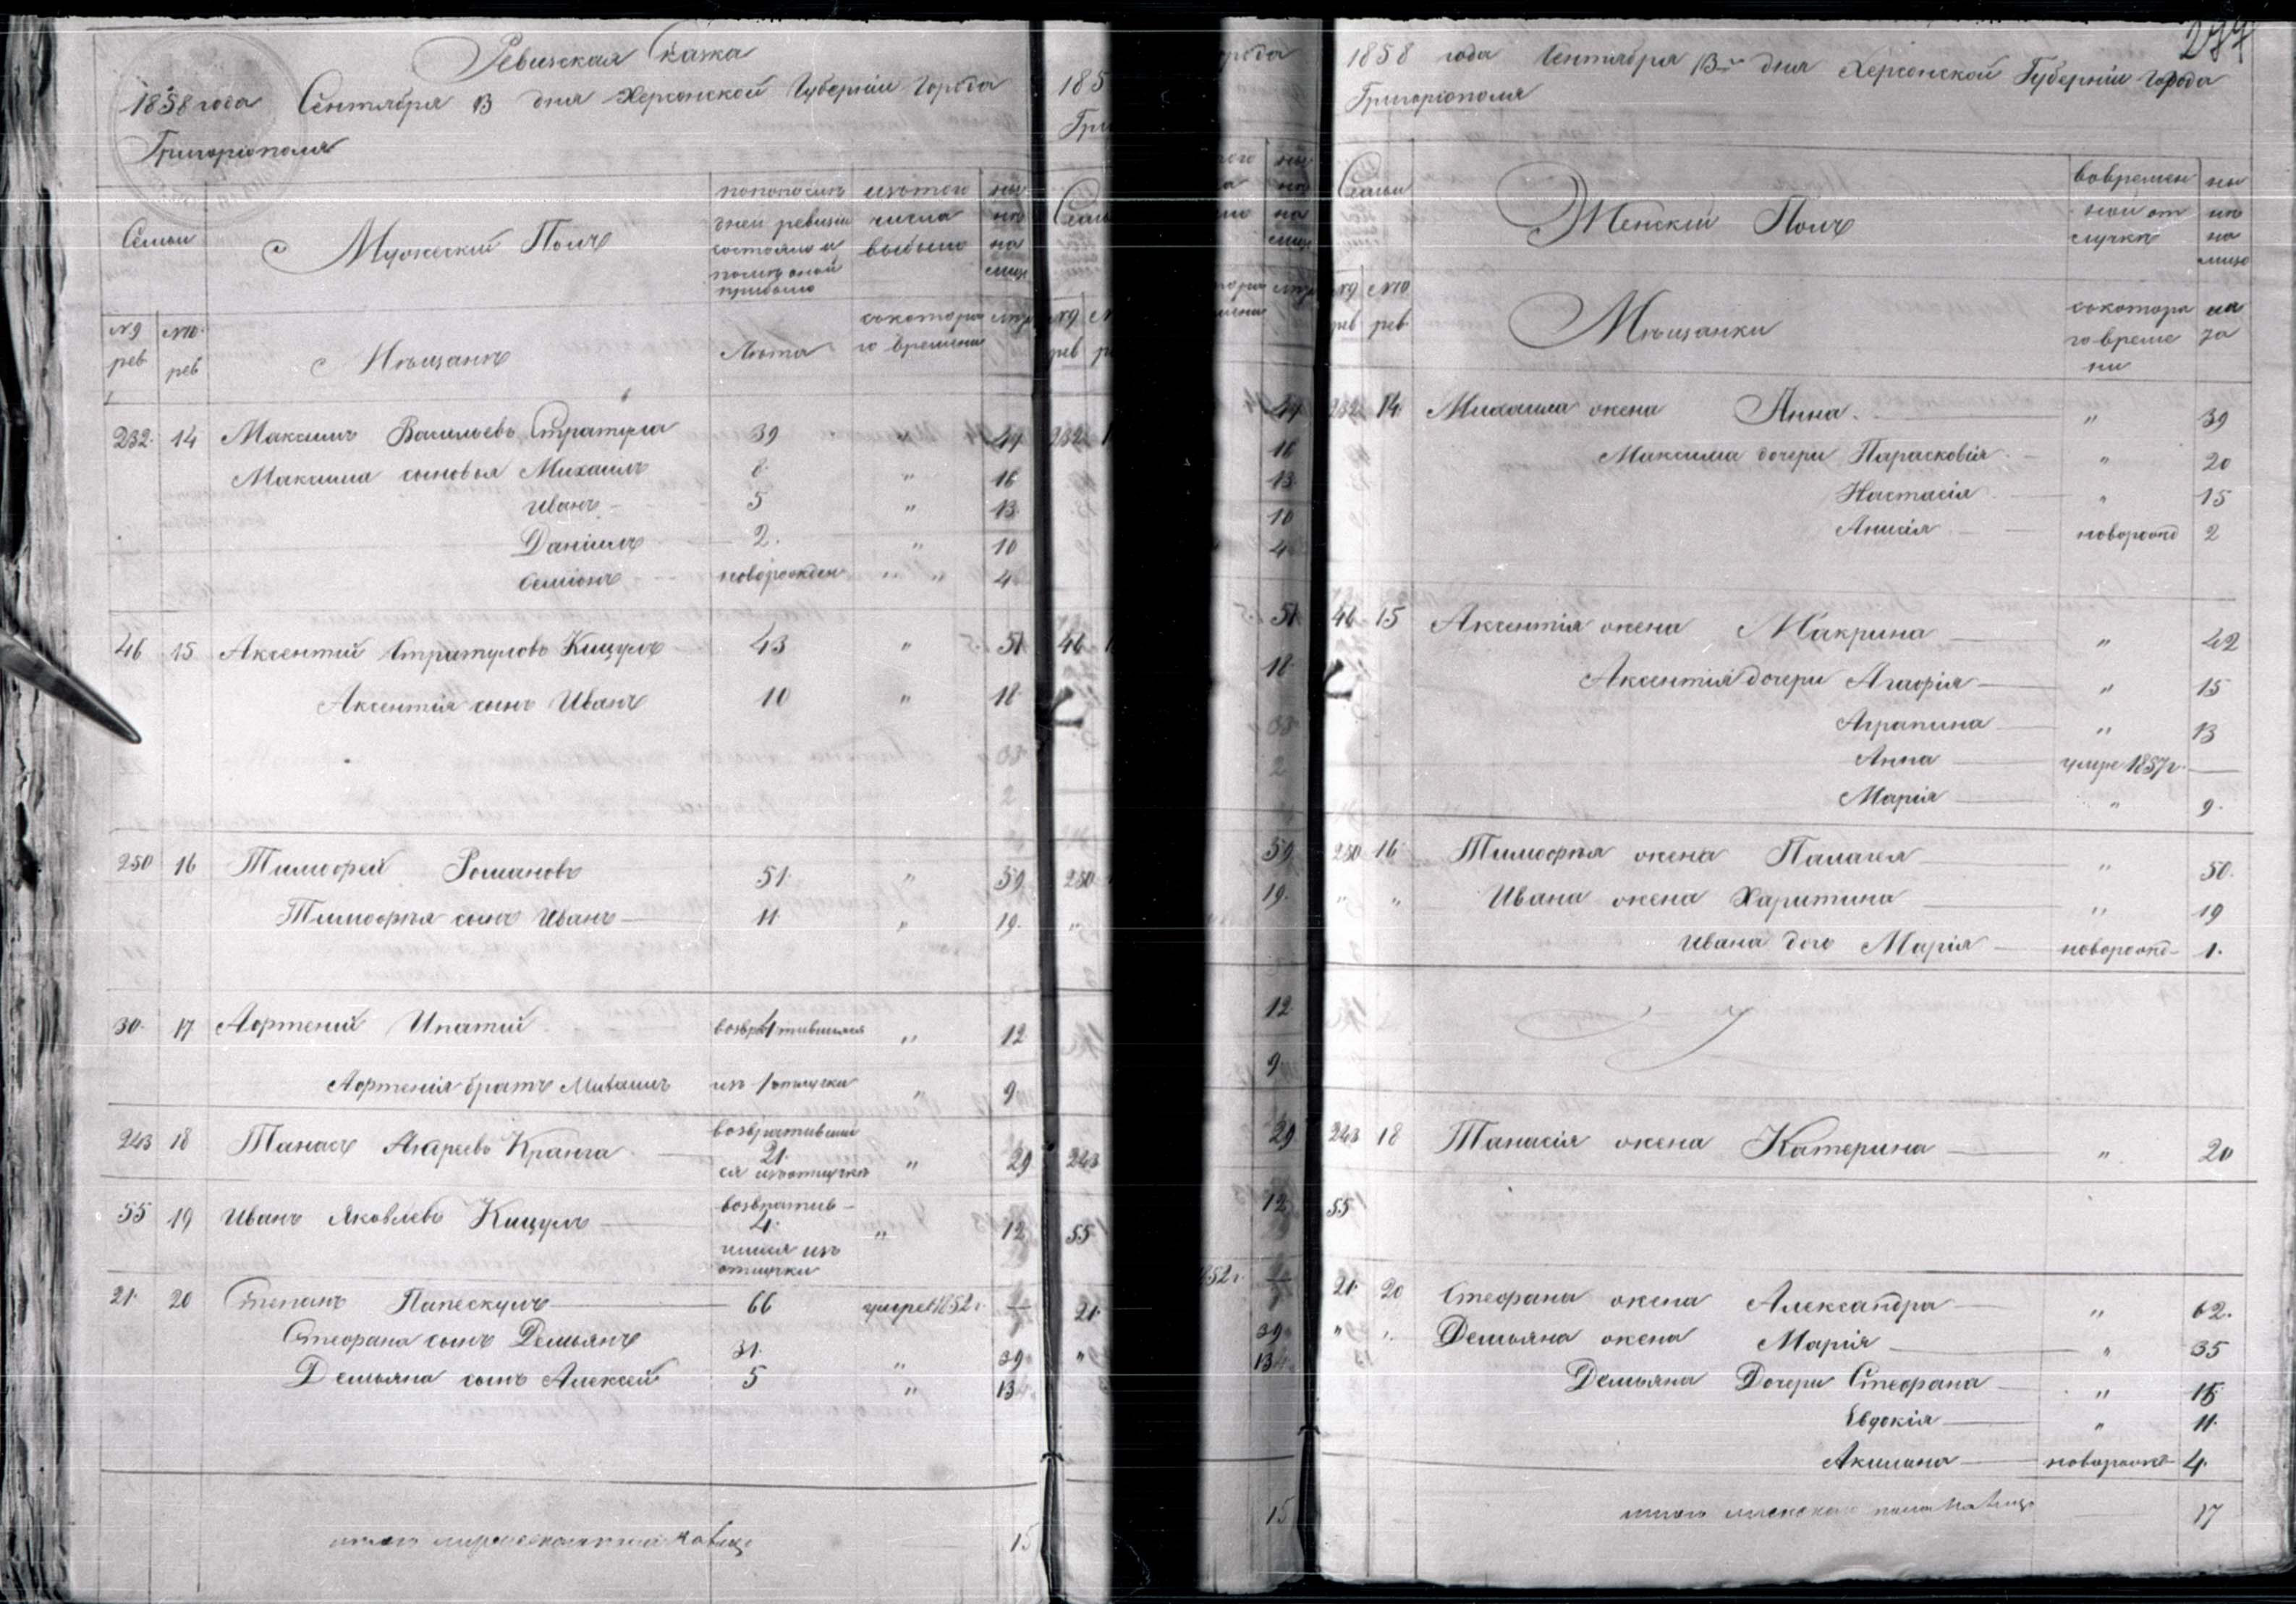 Ревизская Сказка
1858 года Сентября 13 дня Херсонской Губерніи Города
Григоріополя
Семьи
Мужеский Полъ
по последней ревизіи состояло и после оной прибыло
изъ того числа выбыло
ныне на лицо
№ 9 рев
№ 10 рев
Мещане
Лета
съ котораго времени
лета
232. 14 Максимъ Васильевъ Стратула 39 " 47
Максима сыновья Михаилъ 8. " 16
Иванъ 5 " 13
Даніилъ 2. " 10
Семіонъ новорожден " " 4
46 15 Аксентий Стратуловъ Кицулъ 43 " 51
Аксентія сынъ Иванъ 10 " 18
250 16 Тимофей Романовъ 51. " 59
Тимофея сынъ Иванъ 11 " 19.
30. 17 Афтеній Ипатий возвратившися 4 " 12
Афтенія братъ Михаилъ изъ отлучки 1 " 9
243 18 Танасъ Андреевъ Кранга возвратившийся изъ отлучки 21. " 29
55 19 Иванъ Яковлевъ Кицулъ возвратившися изъ отлучки 4. " 12
21. 20 Степанъ Папескулъ 66 умре 1852 г. —
Стефана сынъ Демьянъ 31. " 39
Демьяна сынъ Алексей 5 " 13
итого мужеска пола на лицо 15
274
1858 года Сентября 13го дня Херсонской Губерніи Города
Григоріополя
Семьи
Женский Полъ
во временной отлучке
ныне на лицо
№ 9 рев
№ 10 рев
Мещанки
съ котораго времени
лета
232. 14 Михаила жена Анна " 39
Максима дочери Парасковія " 20
Настасія " 15
Анисія новорожд 2
46 15 Аксентія жена Макрина " 42
Аксентія дочери Агафія " 15
Аграпина " 13
Анна умре 1857 г. —
Марія " 9.
250 16 Тимофея жена Палагея " 50.
" " Ивана жена Харитина " 19
Ивана доч Марія новорожд 1.
243 18 Танасія жена Катерина " 20
55
21. 20 Стефана жена Александра " 62.
" " Демьяна жена Марія " 35
Демьяна Дочери Стефана " 15
Евдокія " 11.
Акилина новорожд 4.
итого женскаго пола на лицо 17